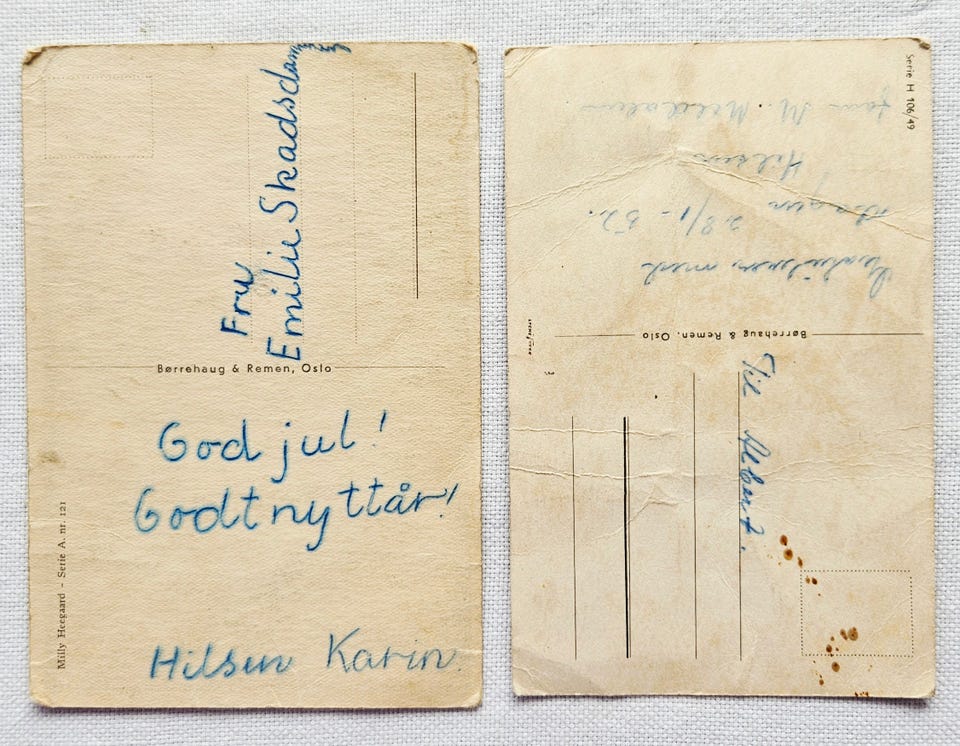 Fru
Emilie
Børrehaug & Remen, Oslo
God jul!
Godt nyttår!
Hilsen Karin.
Milly Heegaard - Serie A. nr. 121
Serie H 106/49
Børrehaug & Remen, Oslo
Til Albert.
med
dagen 28/1 - 52.
Hilsen
fam M.